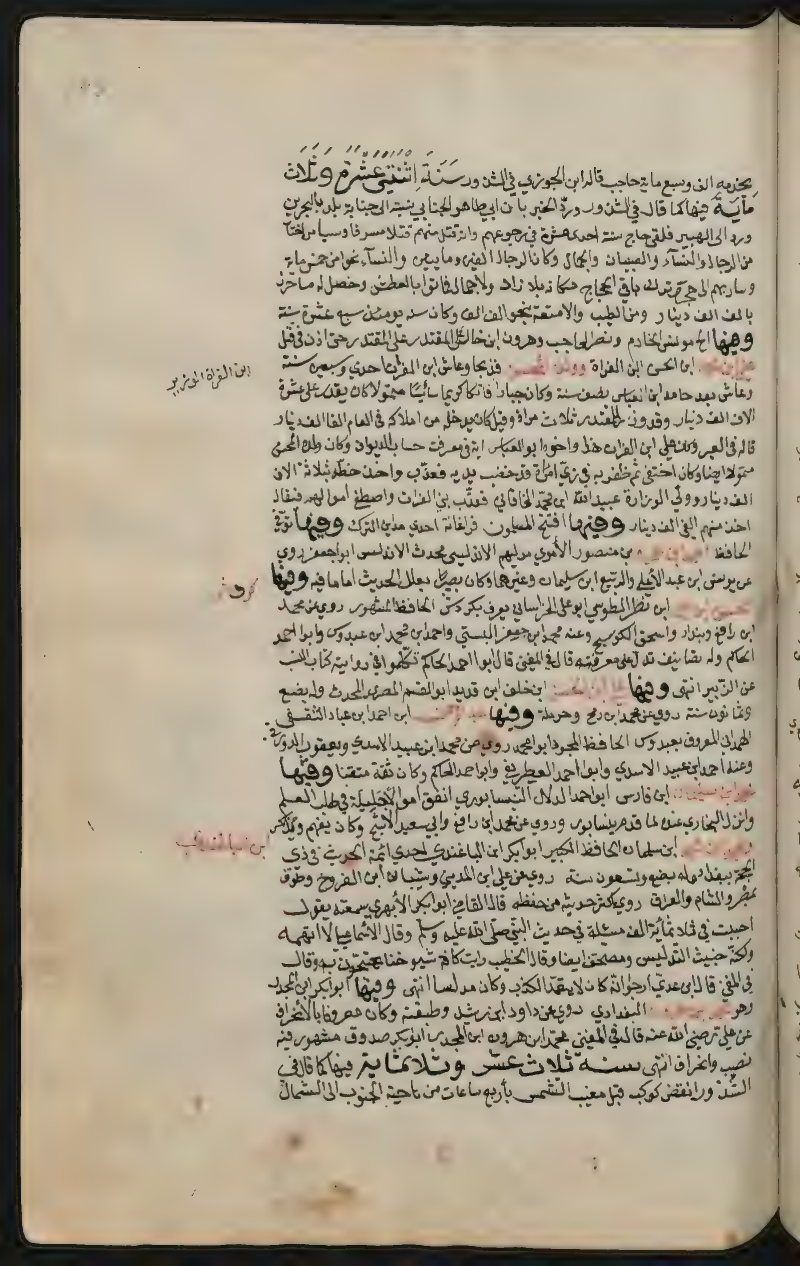 بخدمه الف وسبع ماية حاجب قاله ابن الجوزي في الشذور سنة اثنتي عشرة وثلاث
ماية فيها كما قال في الشذور ورد الخبر بان ابي طاهر الجنابي نسبة الى جنابة بلد بالبحرين
ورد الى الهبير فلقي حاج سنة احدى عشرة في رجوعهم وانه قتل منهم قتلا مسرفا وسبا من اختار
من الرجال والنسآء والصبيان والجمال وكان الرجال الفين ومايتين والنسآء نحوا من خمس ماية
وسار بهم الى هجر وترك باقي الحجاج مكانه بلا زاد ولا جمال فماتوا بالعطش وحصل له ما حزر
بالف الف دينار ومن الطيب والامتعة بنحو الف الف وكان سنه يومئذ سبع عشرة سنة
وفيها الح مونس الخادم ونصر الحاجب وهرون ابن خال المقتدر على المقتدر حتى اذن في قتل
ابن الحسن ابن الفراة وولده المحسن فذبحا وعاش ابن الفرات احدى وسبعين سنة
وعاش بعد حامد ابن العباس نصف سنة وكان جبارا فاتكا كريما سائسا متمولا كان يقدر على عشرة
الاف الف دينار وقد وزر للمقتدر ثلاث مرات وقيل كان يدخله من املاكه في العام الفا الف دينار
قاله في العبر وكان علي ابن الفرات هذا واخوه ابو العباس اية في معرفة حساب الديوان وكان ولده المحسن
متمولا ايضا وكان اختفى ثم ظفر به في زي امراة قد خضب يديه فعذب واخذ خطه بثلاثة الاف
الف دينار وولي الوزارة عبيد الله ابن محمد الخاقاني فعذب بني الفرات واصطفى اموالهم فيقال
اخذ منهم الفي الف دينار وفيها افتتح المسلمون فرغانة احدى مداين الترك وفيها توفي
الحافظ بن منصور الاموي مولاهم الاندلسي محدث الاندلس ابو جعفر روى
عن يونس ابن عبد الأعلى والربيع ابن سليمان وغيرهما وكان بصيرا بعلل الحديث اماما فيه وفيها
ابن نصر الطوسي ابو علي الخراساني يعرف بكردش الحافظ المشهور روى عن محمد
ابن رافع وبندار واسحق الكوسج وعنه محمد ابن جعفر البستي واحمد ابن محمد ابن عبدوس وابو احمد
الحاكم وله تصانيف تدل على معرفته قال في المغني قال ابو احمد الحاكم تكلموا في روايته كتاب النسب
عن الزبير انتهى وفيها علي ابن الحسن ابن خلف ابن قديد ابو القسم المصري المحدث وله بضع
وثمانون سنة روى عن محمد ابن رمح وحرملة وفيها ابن احمد ابن عباد الثقفي
الهمداني المعروف بعبدوس الحافظ المجود ابو محمد روى عن محمد ابن عبيد الاسدي ويعقوب الدورقي
وعنه احمد ابن عبيد الاسدي وابو احمد الغطريفي وابو احمد الحاكم وكان ثقة متقنا وفيها
ابن فارس ابو احمد الدلال النيسابوري انفق اموالا جليلة في طلب العلم
وانزل البخاري عنده لما قدم نيسابور وروى عن محمد ابن رافع وابي سعيد الاشج وكان يفهم ويذاكر
ابن سليمان الحافظ الكبير ابو بكر ابن الباغندي احدى ائمة الحديث في ذي
الحجة ببغداد وله بضع وتسعون سنة روى عن علي ابن المديني وشيبان ابن الفروخ وطوف
بمصر والشام والعراق روى اكثر حديثه من حفظه قال القاضي ابو بكر الأبهري سمعته يقول
اجبت في ثلاثماية الف مسئلة في حديث النبي صلى الله عليه وسلم وقال الاسماعيلي لا اتهمه
ولكنه خبيث التدليس ومصحف ايضا وقال الخطيب رايت كافة شيوخنا يحتجون به وقال
في المغني قال ابن عدي ارجوانه كان لا يتعمد الكذب وكان مدلسا انتهى وفيها ابو بكر ابن المجدر
وهو البغدادي روى عن داود ابن رشيد وطبقته وكان معروفا بالانحراف
عن علي رضي الله عنه قال في المغني محمد ابن هرون ابن المجدر ابو بكر صدوق مشهور فيه
نصب وانحراف انتهى سنة ثلاث عشر وثلاثماية فيها كما قال في
الشذور انقض كوكب قبل مغيب الشمس بأربع ساعات من ناحية الجنوب الى الشمال
ابن الفراة الوزير
كردش